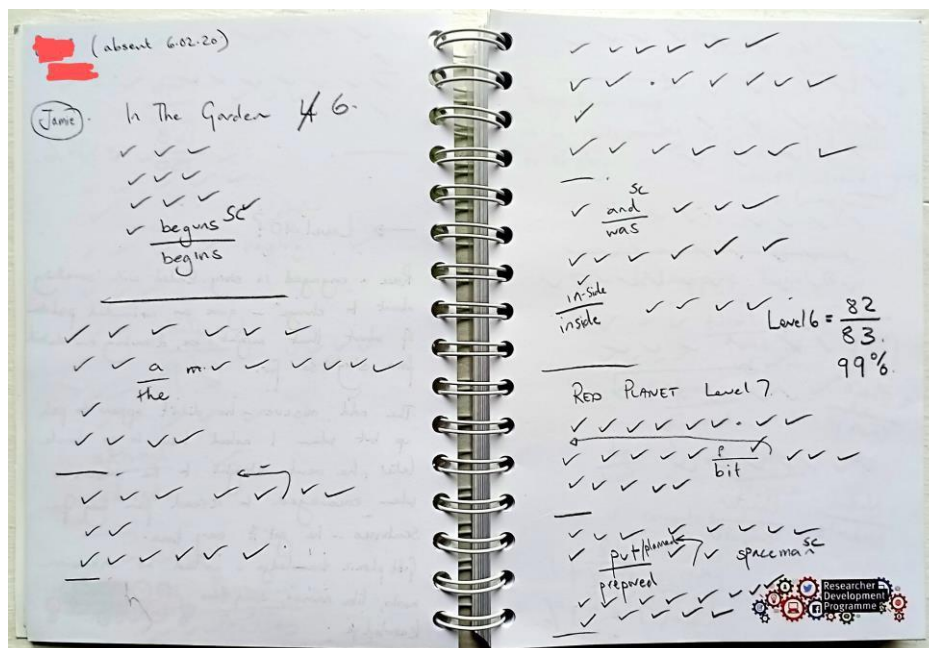 (absent 6.02.20)
Jamie. In The Garden 6.
✓ ✓ ✓
✓ ✓ ✓
✓ ✓ ✓ ✓
✓ beguns SC
begins
✓ ✓ ✓ ✓ ✓
✓ ✓ a m. ✓ ✓ ✓ ✓ ✓ ✓
the
✓
✓ ✓ ✓ ✓
✓ ✓ ✓ ✓ ✓ ✓ ✓
✓ ✓
✓ ✓ ✓ ✓ ✓ ✓
✓ ✓ ✓ ✓ ✓ ✓
✓ ✓ . ✓ ✓ ✓ ✓ ✓
✓
✓ ✓ ✓ ✓ ✓ ✓ ✓
SC
✓ and ✓ ✓ ✓
was
✓ ✓ ✓ ✓ ✓ ✓
✓
in-side ✓ ✓ ✓ ✓
inside
Level 6 = 82
83.
99%.
RED PLANET Level 7.
✓ ✓ ✓ ✓ ✓ ✓ . ✓ ✓
✓ ✓ ✓ ✓ ✓ ✓ ✓ ✓ ✓
bit
✓ ✓ ✓ ✓ ✓
✓ ✓ ✓ ✓ ✓ ✓ ✓
✓ put/planned ✓ ✓ spaceman SC
prepared
✓ ✓ ✓ ✓ ✓ ✓ ✓
✓ ✓ ✓ ✓ ✓
Researcher
Development
Programme